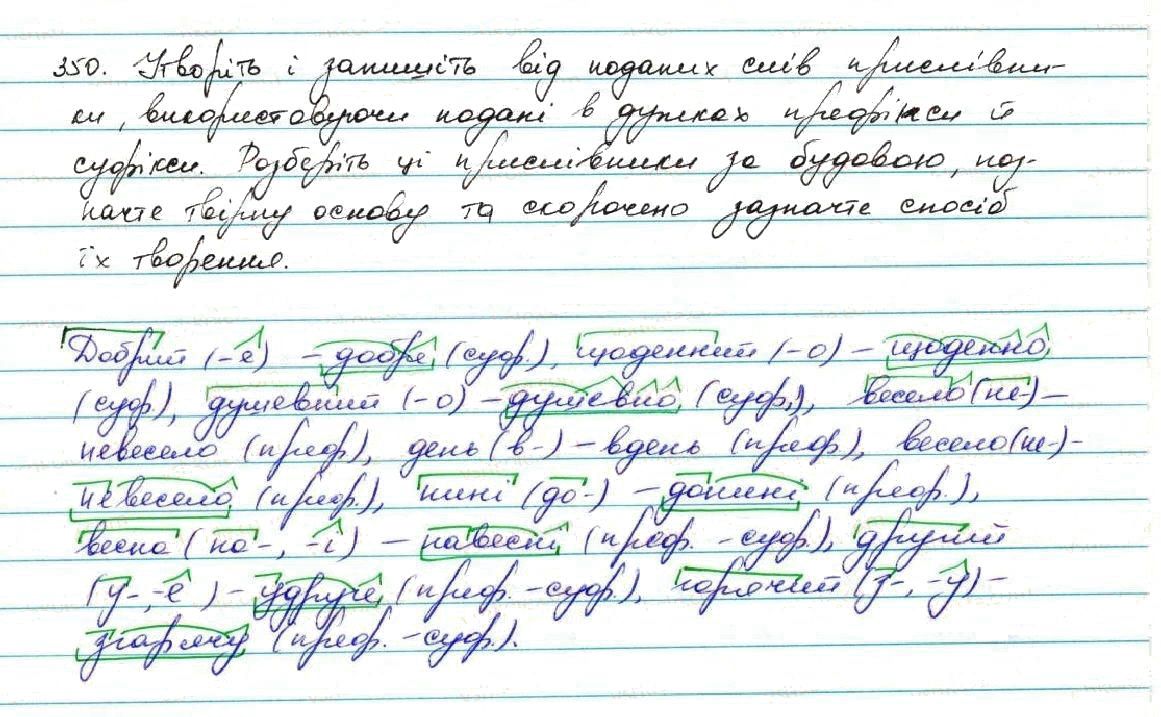 350. Утворіть і запишіть від поданих слів прислівни-
ки, використовуючи подані в дужках префікси й
суфікси. Розберіть ці прислівники за будовою, поз-
начте твірну основу та скорочено зазначте спосіб
їх творення.
Добрий (-е) – добре (суф.), щоденний (-о) – щоденно
(суф.), душевний (-о) – душевно (суф.), весело (не-) –
невесело (преф.), день (в-) – вдень (преф.), весело (не-) -
невесело (преф.), нині (до-) – донині (преф.),
весна (на-, -і) – навесні (преф. -суф.), другий
(у-, -е) – удруге (преф. -суф.), гарячий (з-, -у) –
згарячу (преф. -суф.).